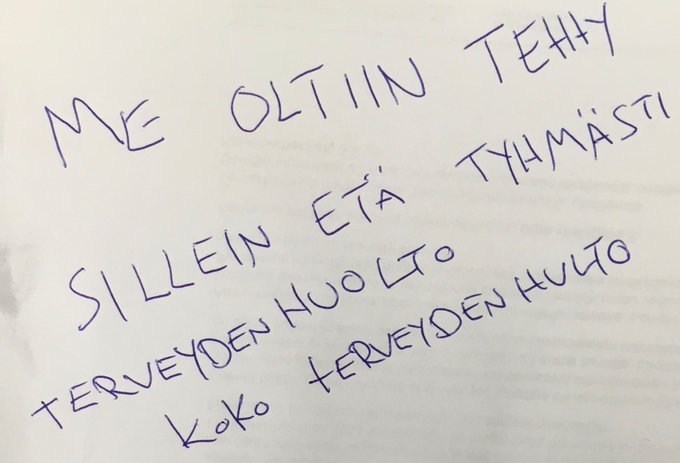 ME OLTIIN TEHHY
SILLEIN ETÄ TYHMÄSTI
TERVEYDENHUOLTO
KOKO TERVEYDENHULTO